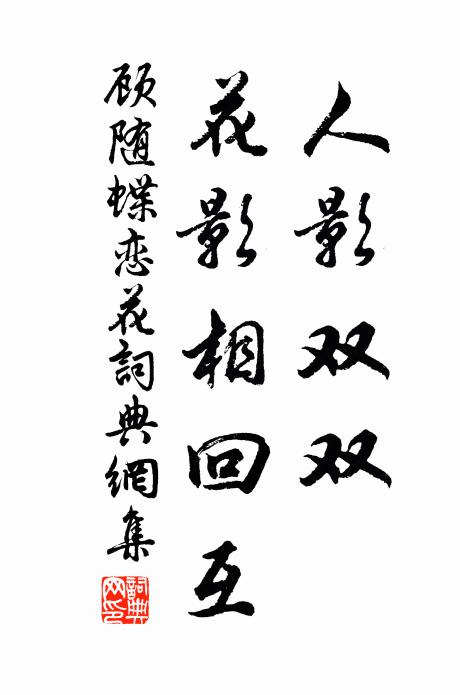 人影双双
花影相回互
顾随蝶恋花詞典網集
詞典网印